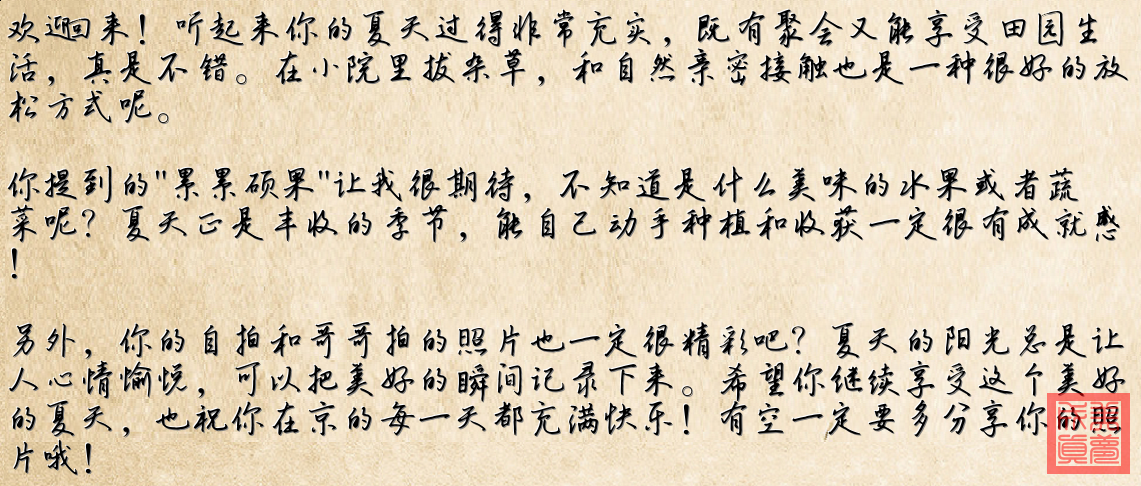 欢迎回来！听起来你的夏天过得非常充实，既有聚会又能享受田园生
活，真是不错。在小院里拔杂草，和自然亲密接触也是一种很好的放
松方式呢。
你提到的"累累硕果"让我很期待，不知道是什么美味的水果或者蔬
菜呢？夏天正是丰收的季节，能自己动手种植和收获一定很有成就感
！
另外，你的自拍和哥哥拍的照片也一定很精彩吧？夏天的阳光总是让
人心情愉悦，可以把美好的瞬间记录下来。希望你继续享受这个美好
的夏天，也祝你在京的每一天都充满快乐！有空一定要多分享你的照
片哦！